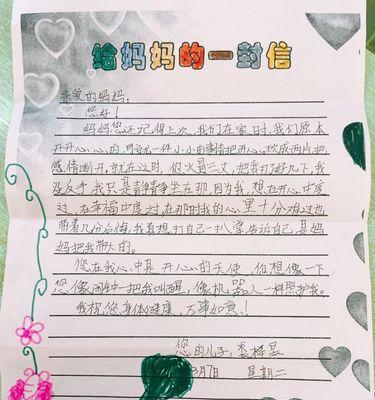 给妈妈的一封信
亲爱的妈妈:
您好!
妈妈您还记得上次,我们在家时,我们原本
开开心心的,可却一件小小的事情把开心砍成两片把
感情断开,就在这时,您火冒三丈,把我打好几下,我
没反手,我只是静静坐在那,因为我,想在开心中度
过,在幸福中度过,在那时我的心里十分难过也
带着几份后悔,我真想打自己一八掌告诉自己,是妈
妈把我带大的。
您在我心中是开心的天使,你想像一下
您像闹钟一把我叫醒,像机器人一样照护我。
我祝您身体健康,万事如意!
您的儿子:
3月7日 星期二